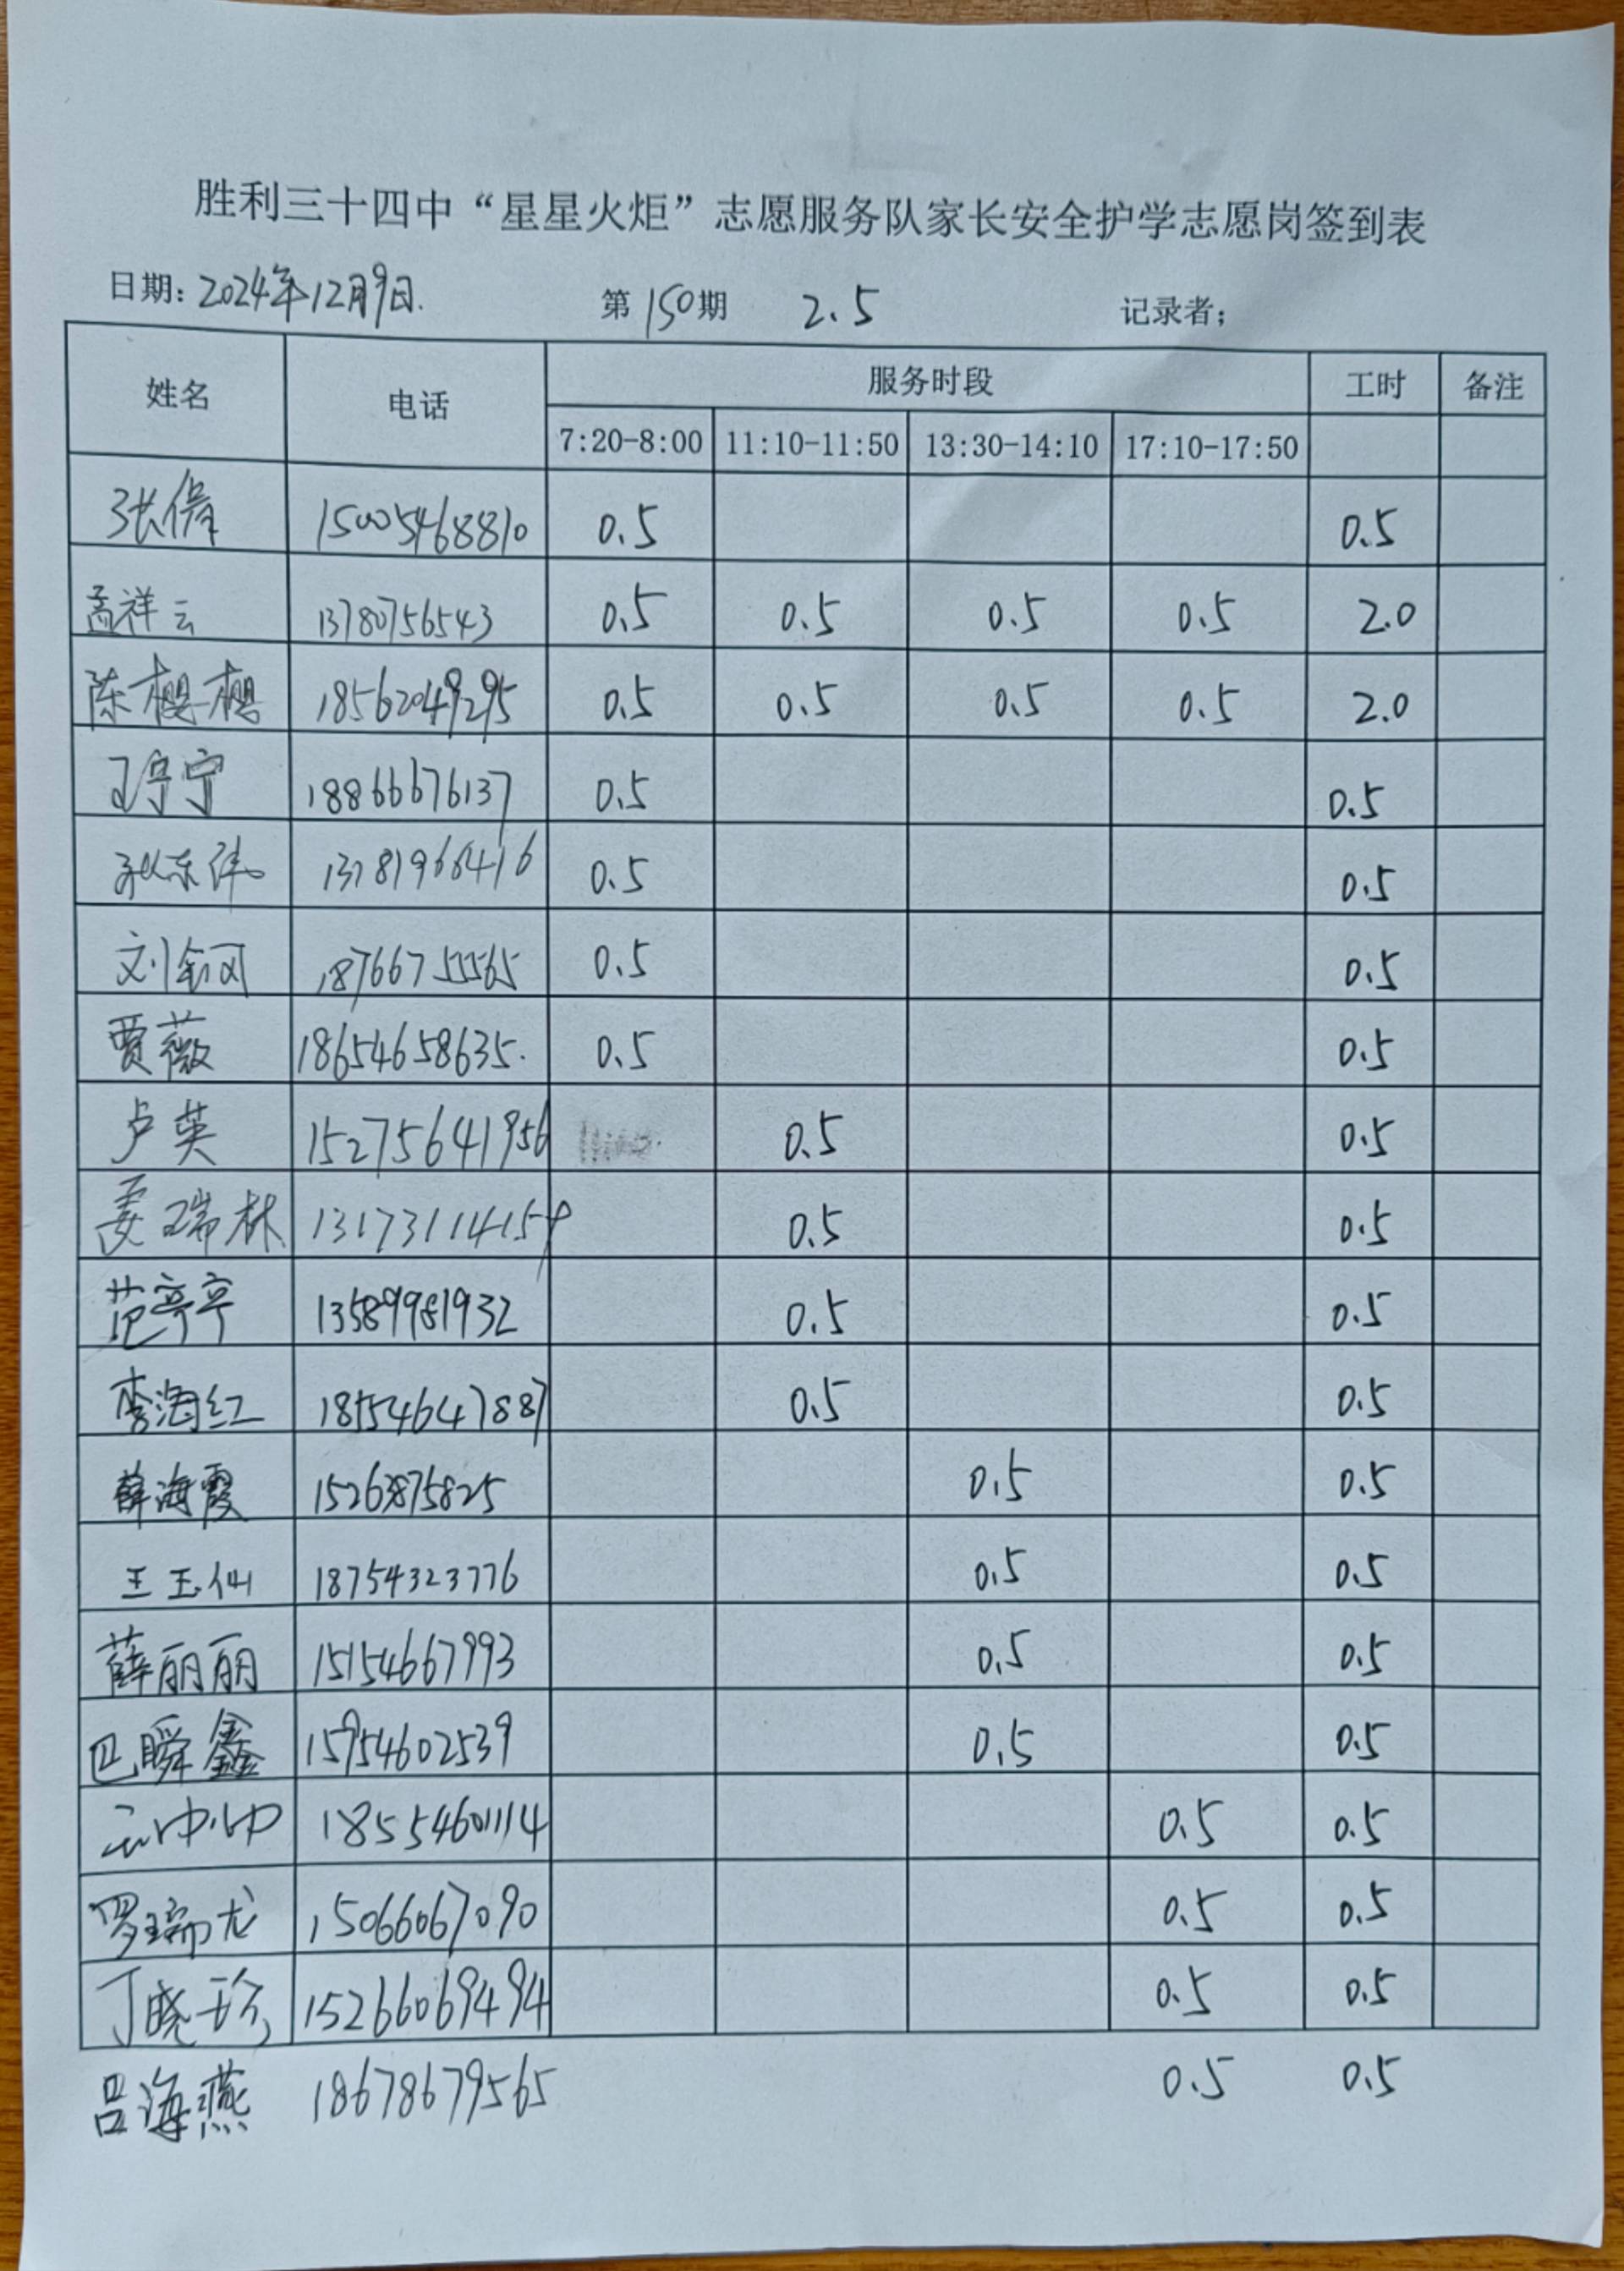 胜利三十四中“星星火炬”志愿服务队家长安全护学志愿岗签到表
日期：2024年12月9日. 第150期 2.5 记录者；
姓名 电话 服务时段 工时 备注
7:20-8:00 11:10-11:50 13:30-14:10 17:10-17:50
张倩 15005468810 0.5 0.5
孟祥云 13780756543 0.5 0.5 0.5 0.5 2.0
陈樱樱 18562049295 0.5 0.5 0.5 0.5 2.0
王宁宁 18866676137 0.5 0.5
13781966416 0.5 0.5
刘 18766755565 0.5 0.5
贾薇 18654658635. 0.5 0.5
卢英 15275641956 0.5 0.5
姜瑞林 0.5 0.5
范亭亭 13589981932 0.5 0.5
李海红 18554647887 0.5 0.5
薛海霞 15263875825 0.5 0.5
王玉仙 18754323776 0.5 0.5
薛丽丽 15154667993 0.5 0.5
巴瞬鑫 15954602539 0.5 0.5
18554601114 0.5 0.5
罗瑞龙 15066067090 0.5 0.5
丁晓珍 15266069494 0.5 0.5
吕海燕 18678679565 0.5 0.5